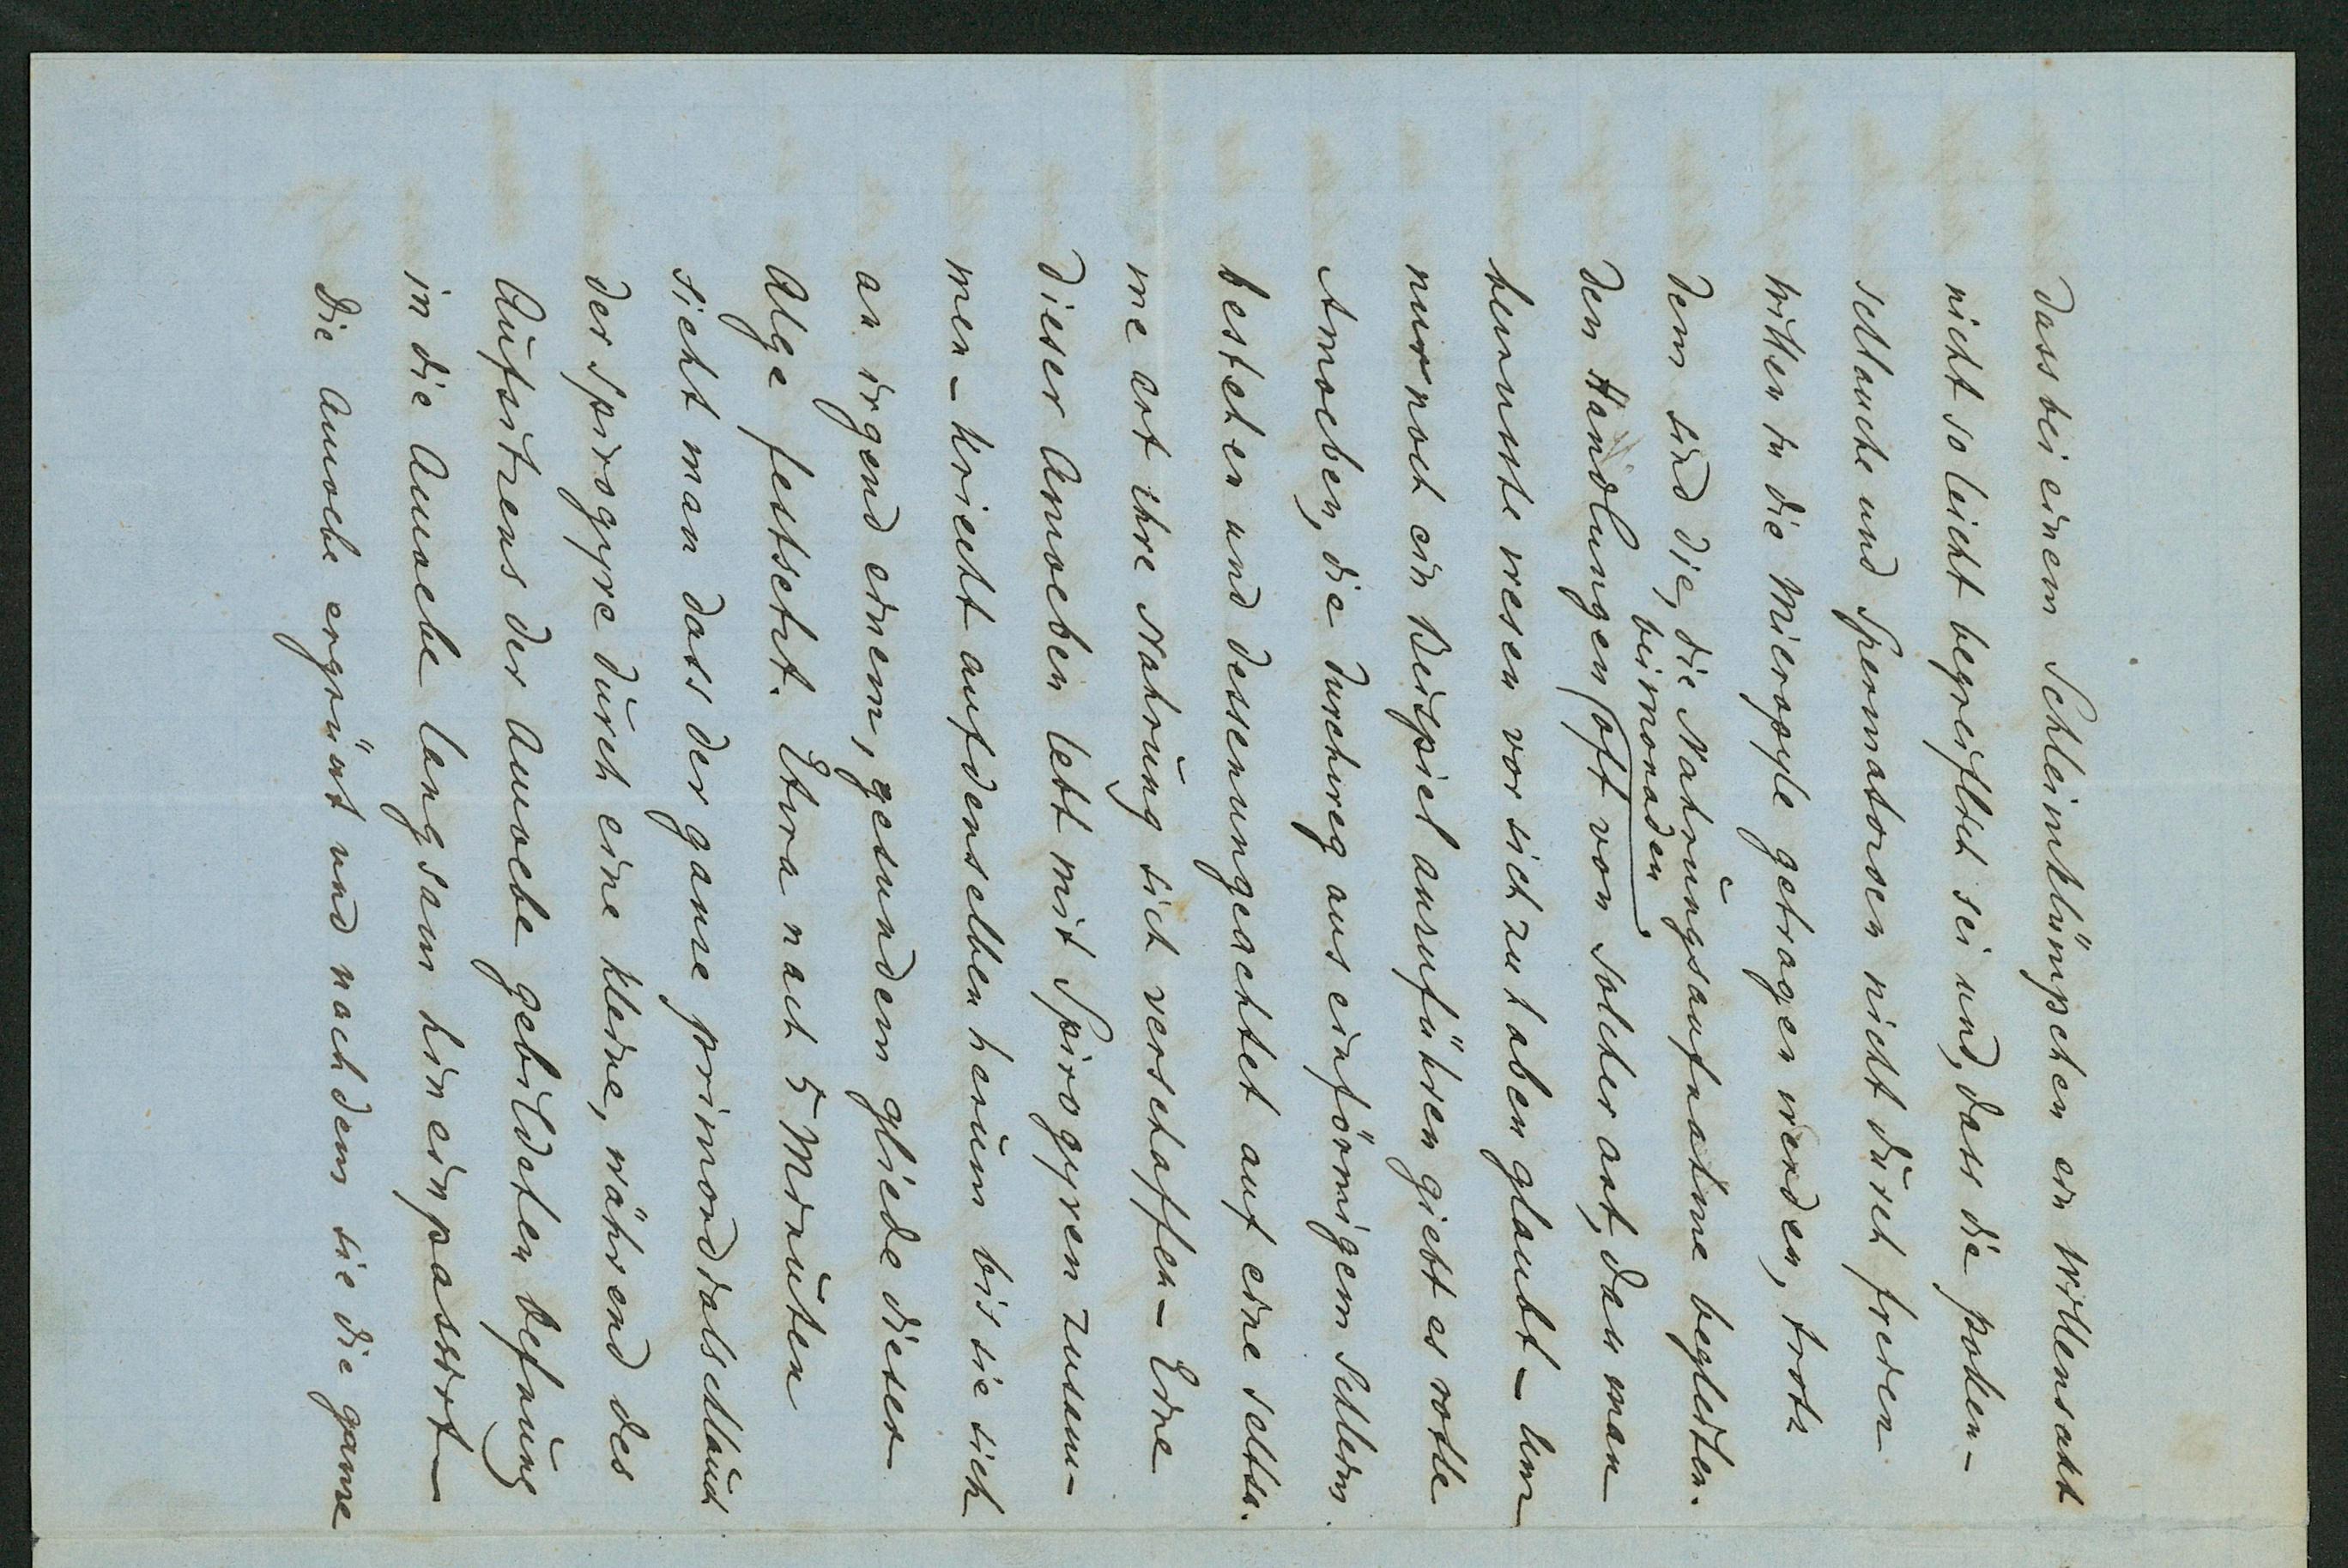 dass bei einem Schleimklümpchen ein willensakt
nicht so leicht begreiflich sei und, dass die pollen-
schlauche und Spermatozoen nicht durch freien
willen in die Micropyle getragen werden, trotz
dem sind die, die Nahrungsaufnahme begleiten-
bei monaden
den Handlungen (oft von solcher art, dass man
bewusste wesen vor sich zu haben glaubt – Um
nur noch ein Beispiel anzuführen giebt es rothe
Amoeben, die durchweg aus einförmigem Schleim
bestehen und dessenungeachtet auf eine seltsa-
me art ihre Nahrung sich verschaffen – Eine
dieser Amoeben lebt mit Spirogyren zusam-
men – kriecht auf denselben herum bis sie sich
an irgend einem, gesundem gliede dieser
Alge festsetzt. Etwa nach 5 Minuten
sieht man dass der ganze primordialschlauch
der Spirogyre durch eine kleine, während des
Aufsitzens der Amoebe gebildeten öefnung
in die Amoebe langsam hineinpassirt –
Die Amoebe ergrünt und nachdem sie die ganze